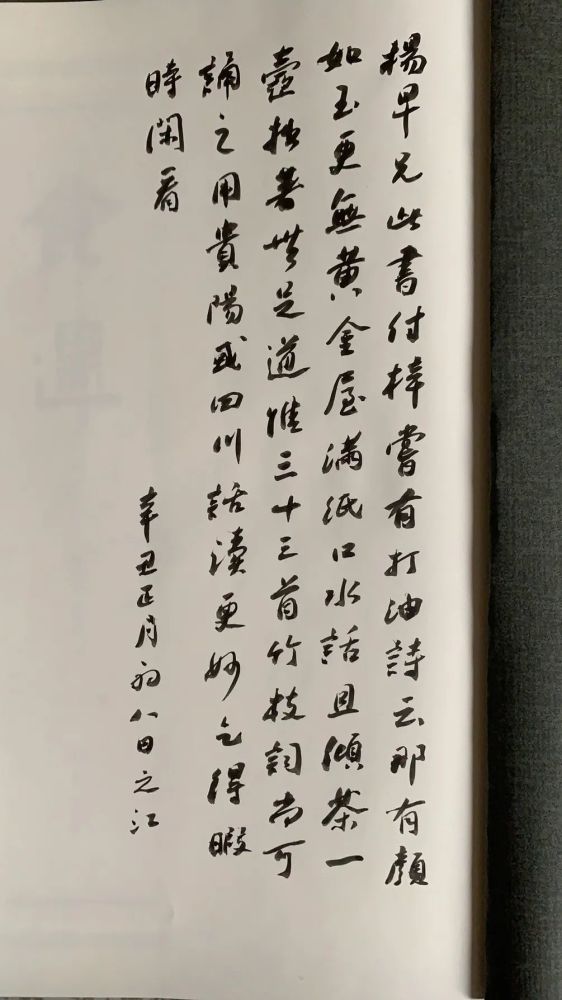 楊早兄此書付梓嘗有打油詩云那有顏
如玉更無黃金屋滿紙口水話且傾茶一
壺拙著無足道惟三十三首竹枝詞尚可
誦之用貴陽或四川話讀更妙乞得暇
時閑看
辛丑正月初八日之江